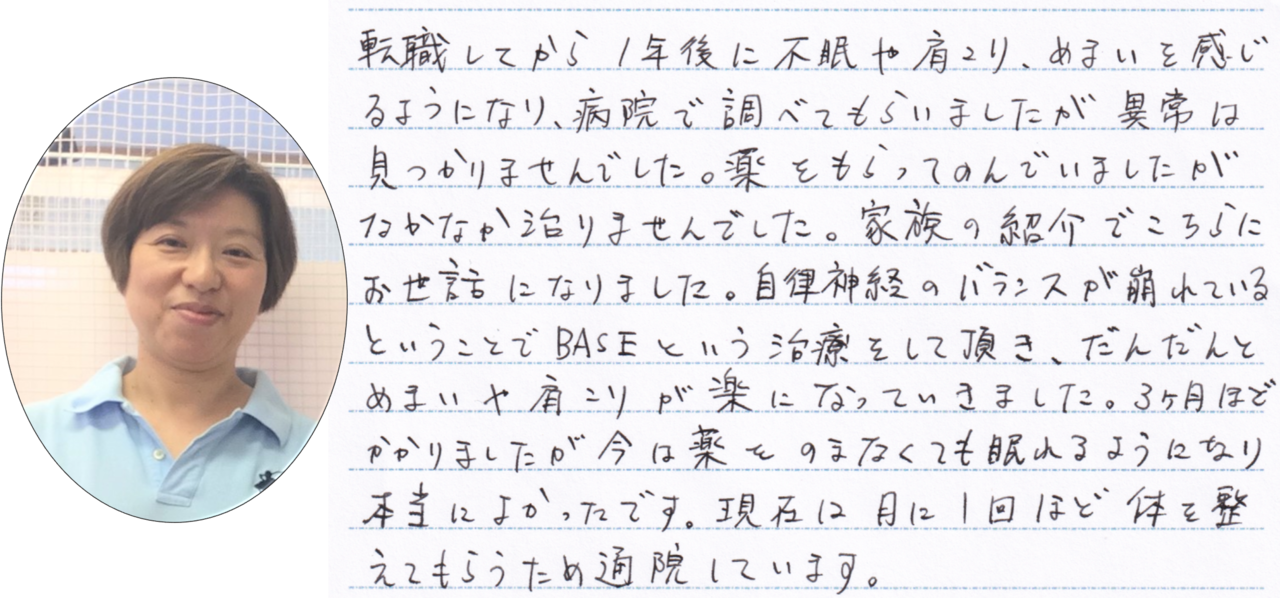 転職してから1年後に不眠や肩こり、めまいを感じ
るようになり、病院で調べてもらいましたが異常は
見つかりませんでした。薬をもらってのんでいましたが
なかなか治りませんでした。家族の紹介でこちらに
お世話になりました。自律神経のバランスが崩れている
ということでBASEという治療をして頂き、だんだんと
めまいや肩こりが楽になっていきました。3ヶ月ほど
かかりましたが今は薬をのまなくても眠れるようになり
本当によかったです。現在は月に1回ほど体を整
えてもらうため通院しています。